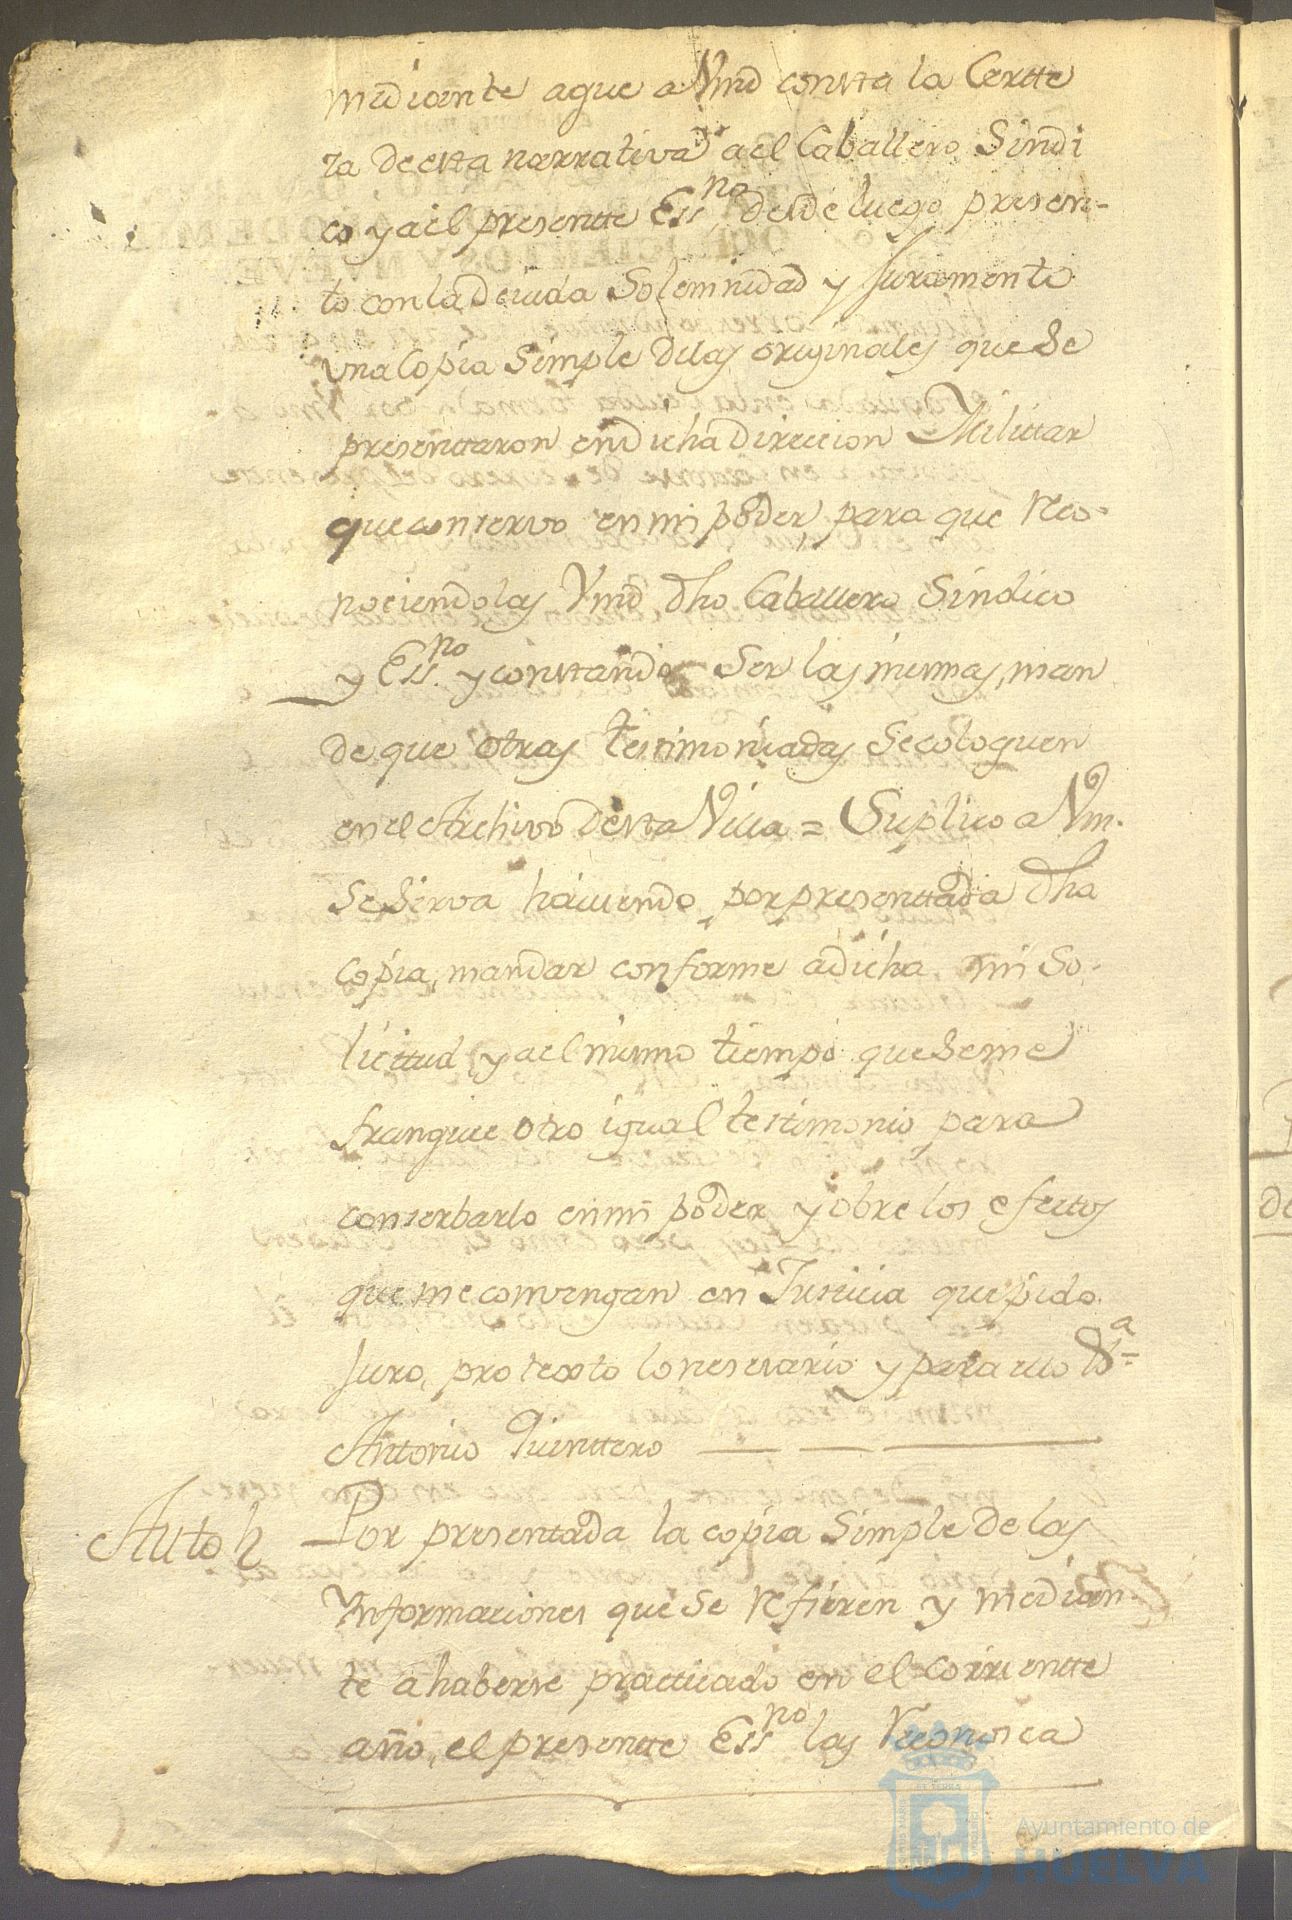 mediante aque a Vmd consta la Certte
za de esta narrativa a el Caballero Sindi
co y a el presentte Essno desde luego presen-
to con la devida Solemnidad y Juramento
vna Copia Simple delas originales que Se
presenttaron en dicha direccion Militar
que conservo en mi poder para que Reco-
nociendolas Vmd dho Caballero Sindico
y Essno y constando Ser las mismas, man
de que otras testimoniadas Se coloquen
en el Archivo desta Villa = Suplico a Vm.
Se Sirva haviendo por presenttada dha
Copia, mandar conforme a dicha mi So-
licittud y a el mismo tiempo que Se me
franquee otro igual testimonio para
conserbarlo en mi poder y obre los efectos
que me convengan en Justicia que pido
Juro, protexto lo nesesario y para ello Va=
Antonio Quinttero
Auto Por presentada la copia Simple de las
Ynformaciones que Se Refieren y median-
te a haberse practicado en el corrientte
año, el presentte Essno las Reconosca
Ayuntamiento de
HUELVA